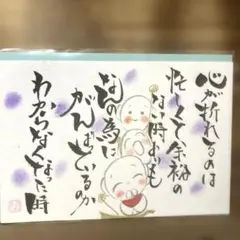 心が折れるのは
忙しくて余裕の
ない時よりも
なんの為に
がんばっているのか
わからなくなった時